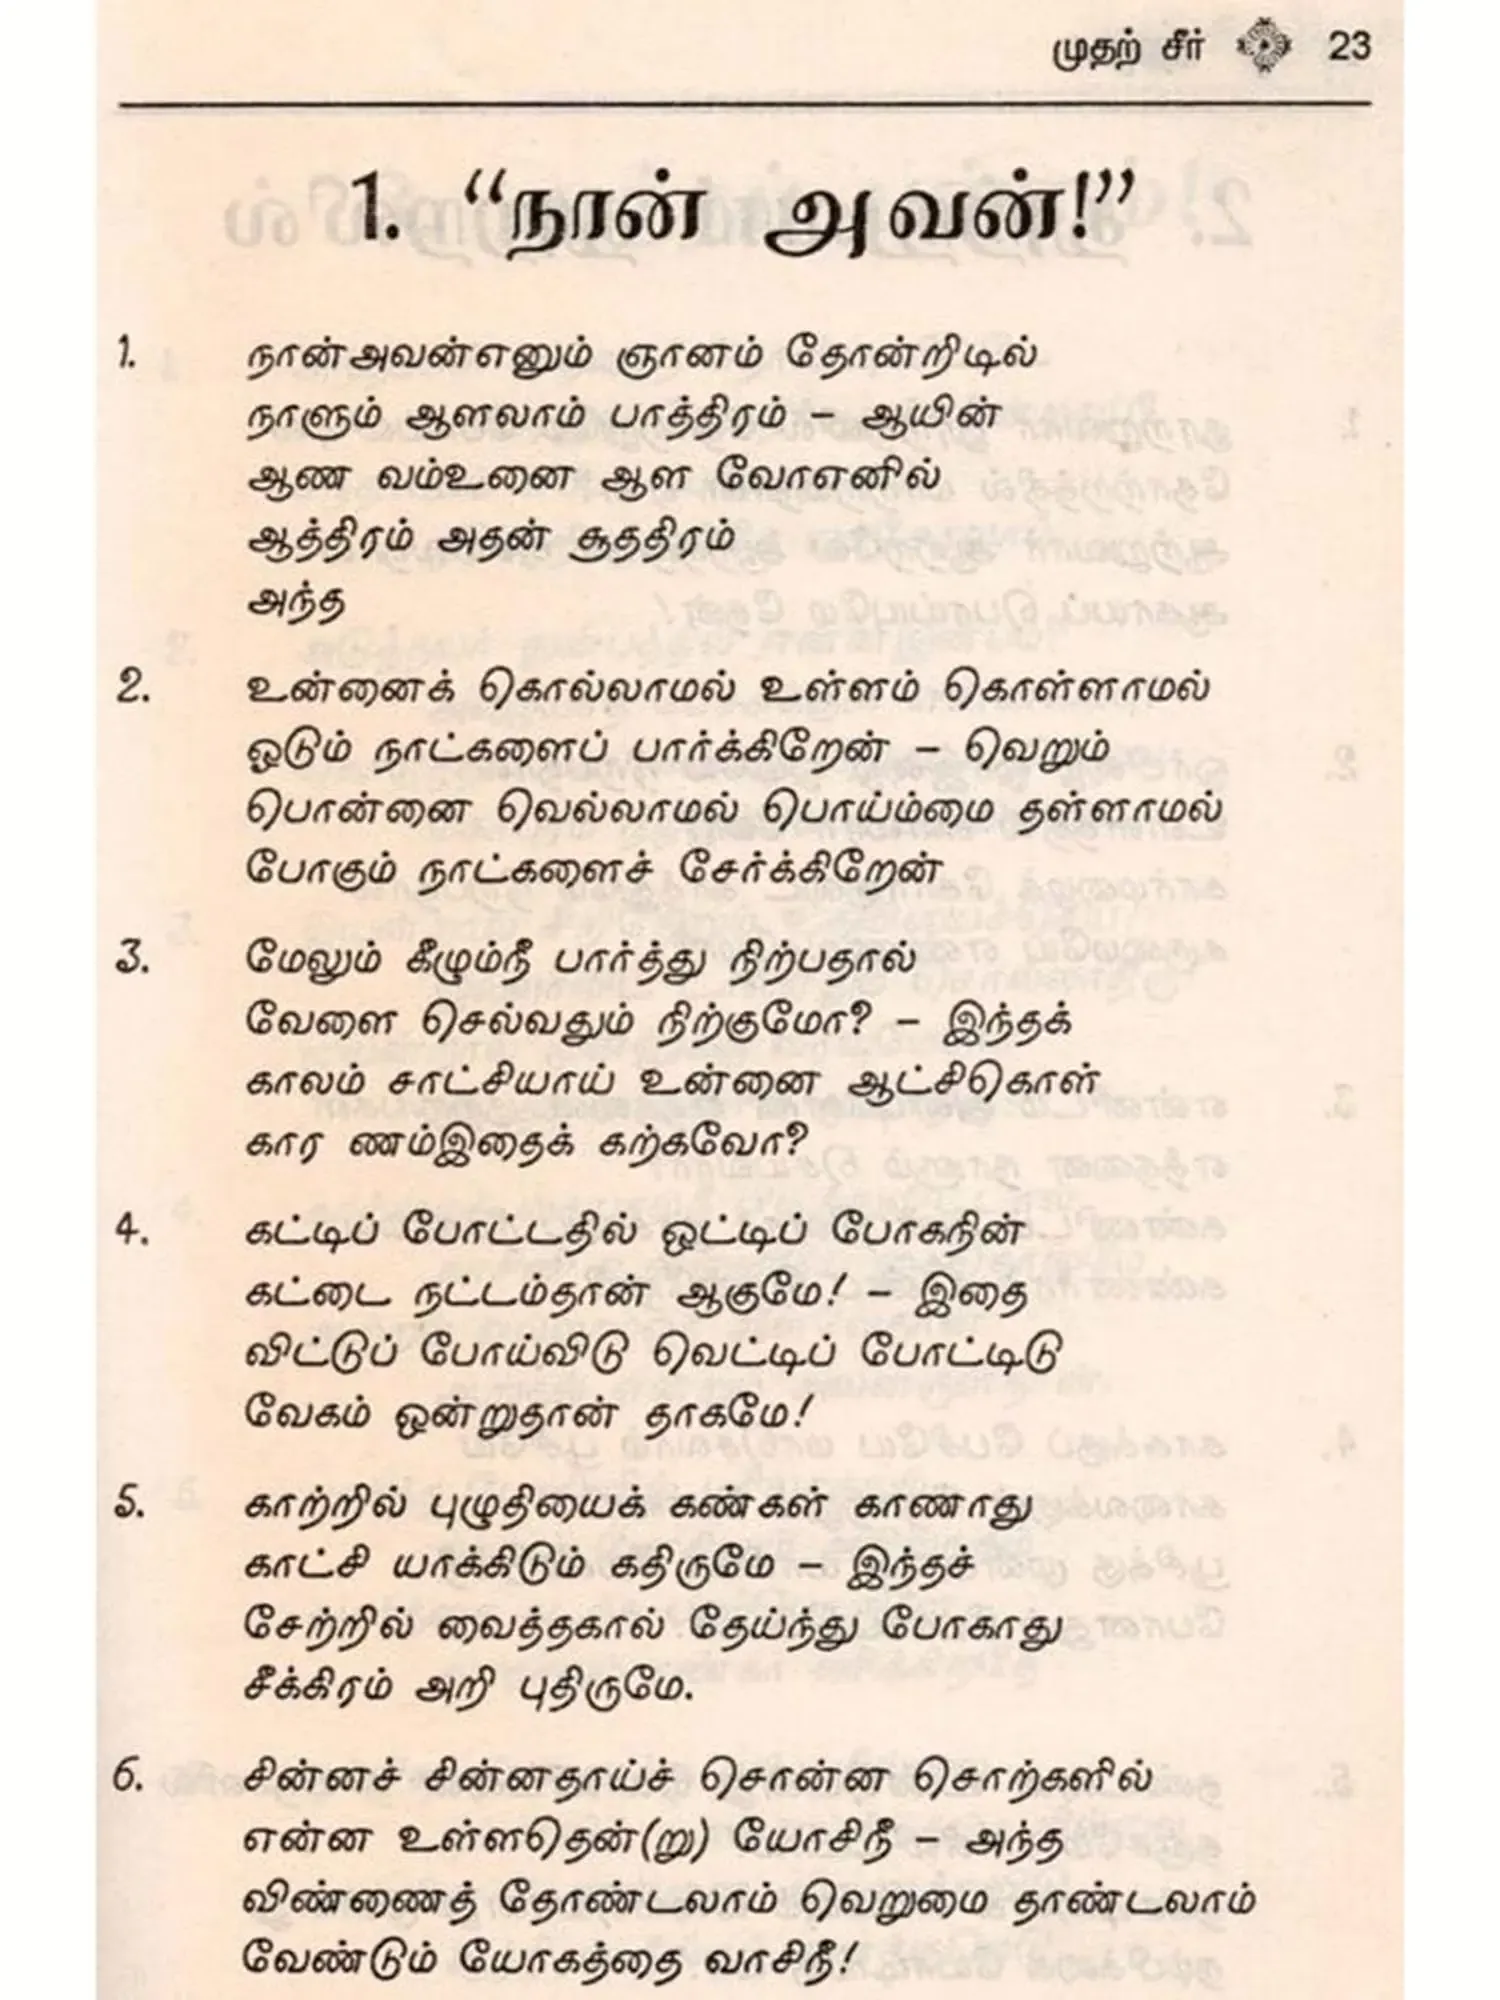 முதற் சீர் 23
1. “நான் அவன்!”
1. நான்அவன்எனும் ஞானம் தோன்றிடில்
நாளும் ஆளலாம் பாத்திரம் – ஆயின்
ஆண வம்உனை ஆள வோஎனில்
ஆத்திரம் அதன் சூததிரம்
அந்த
2. உன்னைக் கொல்லாமல் உள்ளம் கொள்ளாமல்
ஓடும் நாட்களைப் பார்க்கிறேன் – வெறும்
பொன்னை வெல்லாமல் பொய்ம்மை தள்ளாமல்
போகும் நாட்களைச் சேர்க்கிறேன்
3. மேலும் கீழும்நீ பார்த்து நிற்பதால்
வேளை செல்வதும் நிற்குமோ? – இந்தக்
காலம் சாட்சியாய் உன்னை ஆட்சிகொள்
கார ணம்இதைக் கற்கவோ?
4. கட்டிப் போட்டதில் ஒட்டிப் போகநின்
கட்டை நட்டம்தான் ஆகுமே! – இதை
விட்டுப் போய்விடு வெட்டிப் போட்டிடு
வேகம் ஒன்றுதான் தாகமே!
5. காற்றில் புழுதியைக் கண்கள் காணாது
காட்சி யாக்கிடும் கதிருமே – இந்தச்
சேற்றில் வைத்தகால் தேய்ந்து போகாது
சீக்கிரம் அறி புதிருமே.
6. சின்னச் சின்னதாய்ச் சொன்ன சொற்களில்
என்ன உள்ளதென்(று) யோசிநீ – அந்த
விண்ணைத் தோண்டலாம் வெறுமை தாண்டலாம்
வேண்டும் யோகத்தை வாசிநீ!